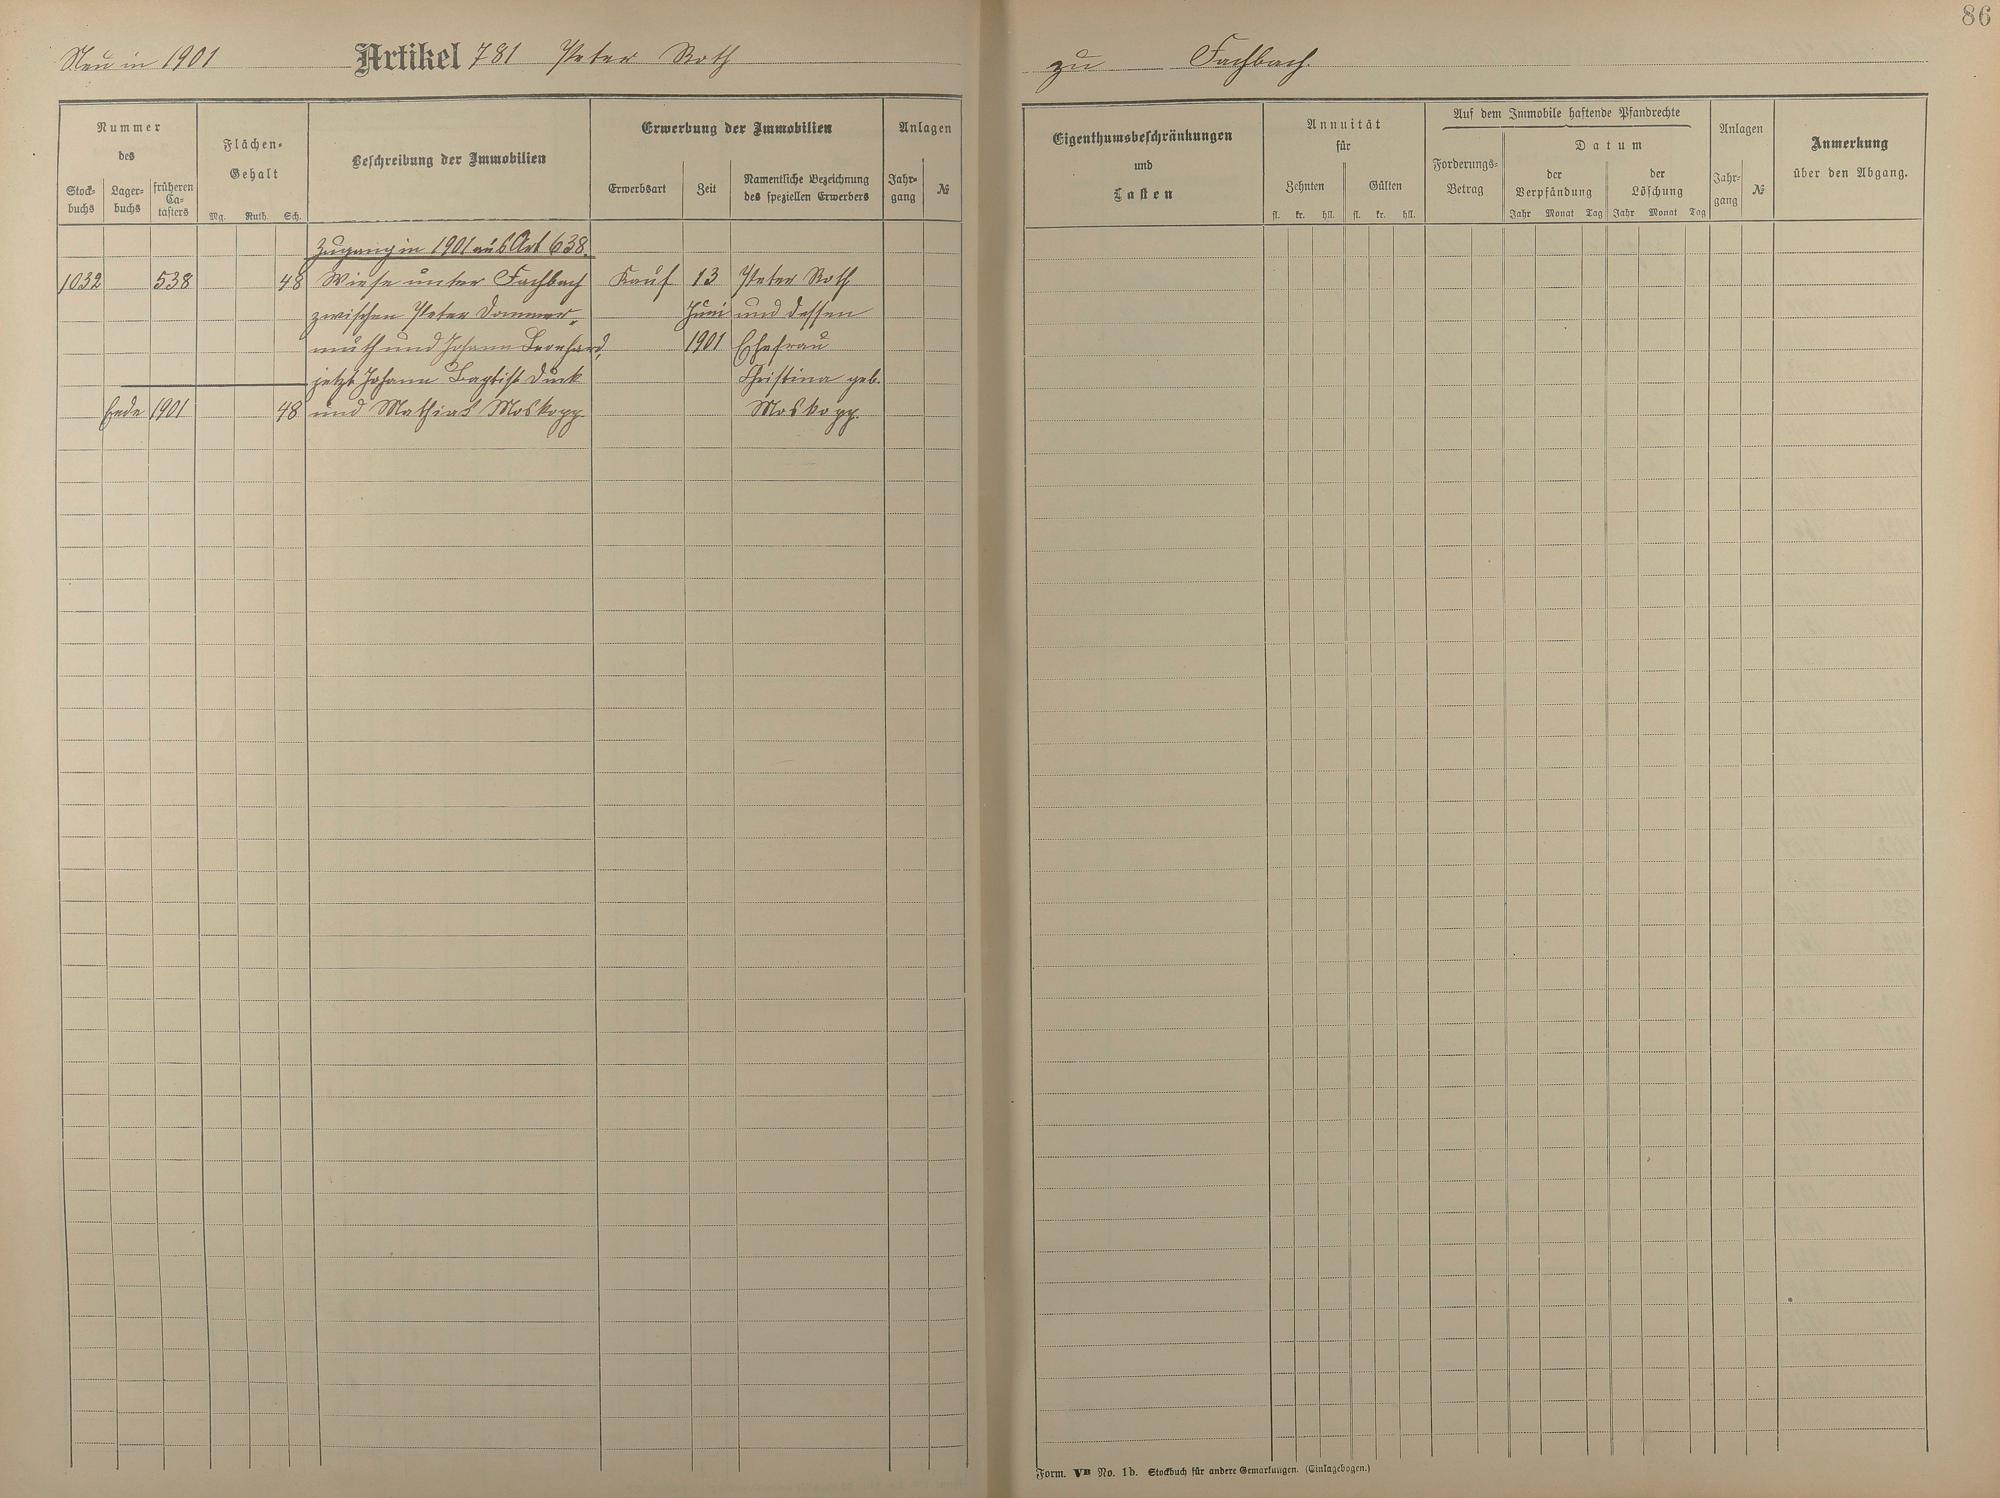 86
Neu in 1901 Artikel 781 Peter Roth zu Fachbach.
Nummer des
Stockbuchs
Lagerbuchs
früheren Catasters
Flächen-Gehalt
Mg. Ruth. Sch.
Beschreibung der Immobilien
Erwerbung der Immobilien
Erwerbsart
Zeit
Namentliche Bezeichnung
des speziellen Erwerbers
Anlagen
Jahrgang
№
Eigenthumsbeschränkungen
und
Lasten
Annuität
für
Zehnten Gülten
fl. kr. hll. fl. kr. hll.
Auf dem Immobile haftende Pfandrechte
Forderungs-
Betrag
Datum
der Verpfändung
Jahr Monat Tag
der Löschung
Jahr Monat Tag
Anlagen
Jahrgang
№
Anmerkung
über den Abgang.
Zugang in 1901 aus Art 638.
1032 538 48 Wiese unter Fachbach Kauf 13 Peter Roth
zwischen Peter Dommer- Juni und dessen
muth und Johann Leonhard, 1901 Ehefrau
jetzt Johann Baptist Dück Christina geb.
Ende 1901 48 und Mathias Moskopp Moskopp.
Form. VB No. 1b. Stockbuch für andere Gemarkungen. (Einlagebogen.)